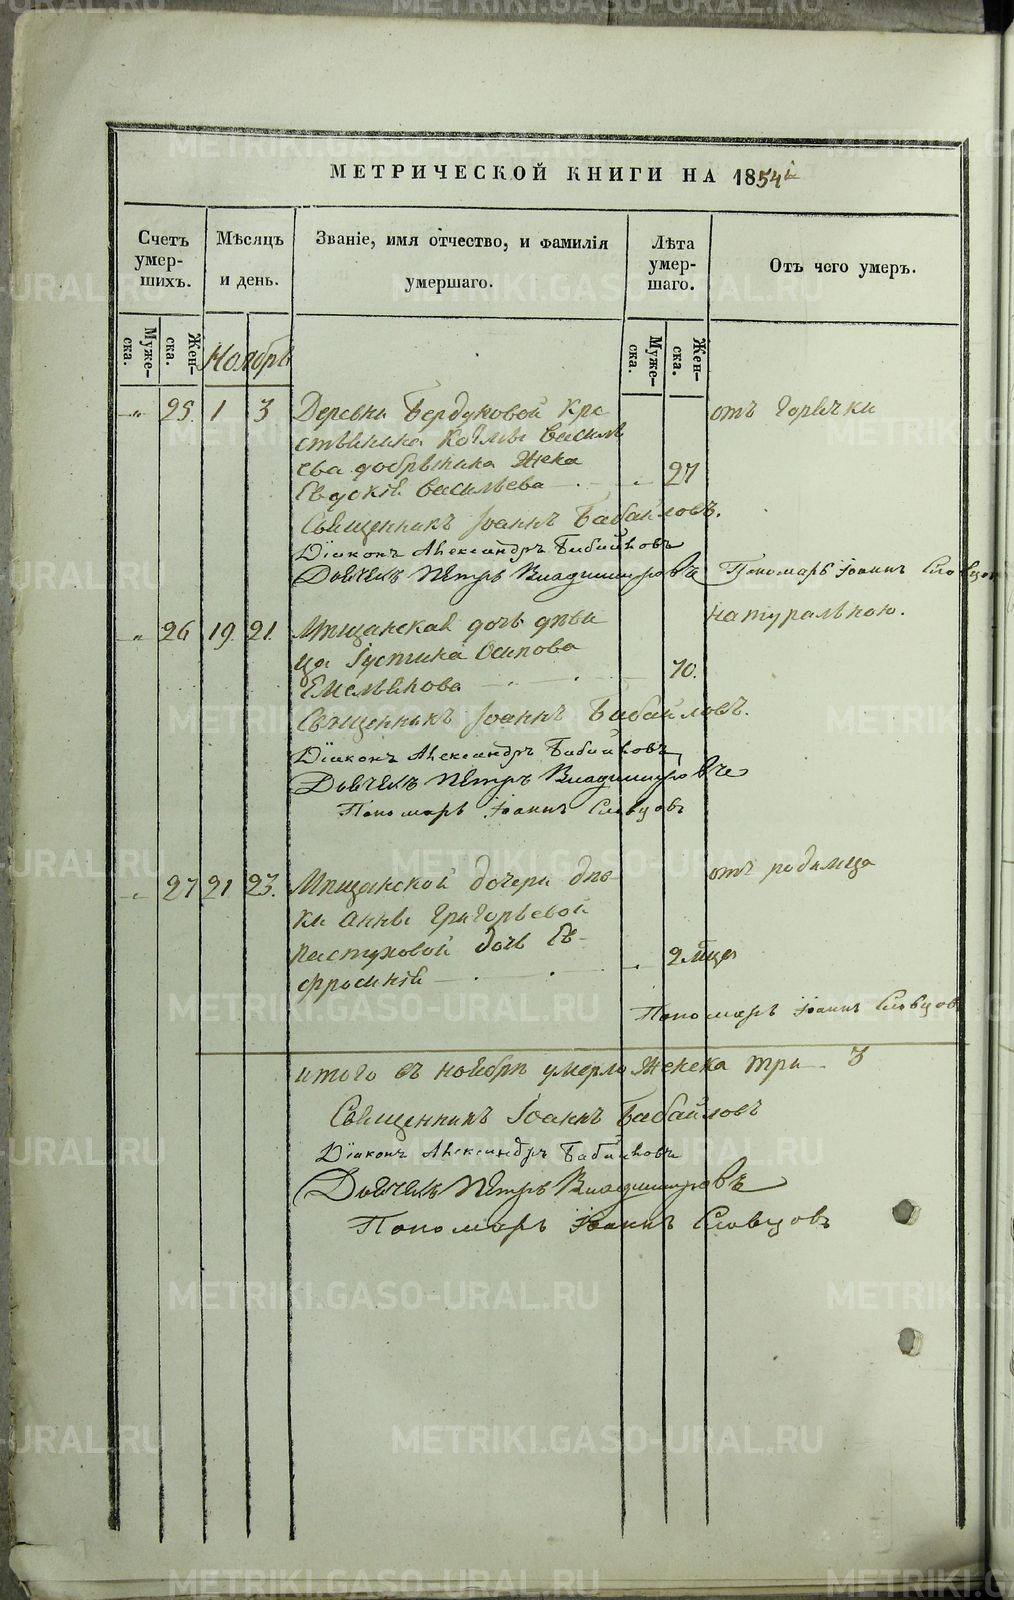 МЕТРИЧЕСКОЙ КНИГИ НА 1854й
Счетъ умер-шихъ.
Мѣсяцъ и день.
Званіе, имя отчество, и фамилія умершаго.
Лѣта умер-шаго.
Отъ чего умеръ.
Муже-ска.
Жен-ска.
Муже-ска.
Жен-ска.
Ноябрь
„ 25 1 3 Деревни Бердюковой кре отъ горячки
стьянина Козмы Василь
ева жена 27
Евдокія Васильева
Священникъ Іоаннъ Бабайловъ.
Діаконъ Александръ Бабайловъ
Дьячекъ Петръ Владимировъ Пономарь Іоаннъ Словцовъ
„ 26 19 21. Мѣщанская дочь дѣви натуральною.
ца Іустина Осипова
Емельянова 70.
Священникъ Іоаннъ Бабайловъ.
Діаконъ Александръ Бабайловъ
Дьячекъ Петръ Владимировъ
Пономарь Іоаннъ Словцовъ
„ 27 21 23. Мѣщанской дочери дѣв- отъ родимца
ки Анны Григорьевой
Пастуховой дочь Ев-
фросинія 2 мца
Пономарь Іоаннъ Словцовъ
итого въ ноябрѣ умерло женска три 3
Священникъ Іоаннъ Бабайловъ
Діаконъ Александръ Бабайловъ
Дьячекъ Петръ Владимировъ
Пономарь Іоаннъ Словцовъ
METRIKI.GASO-URAL.RU